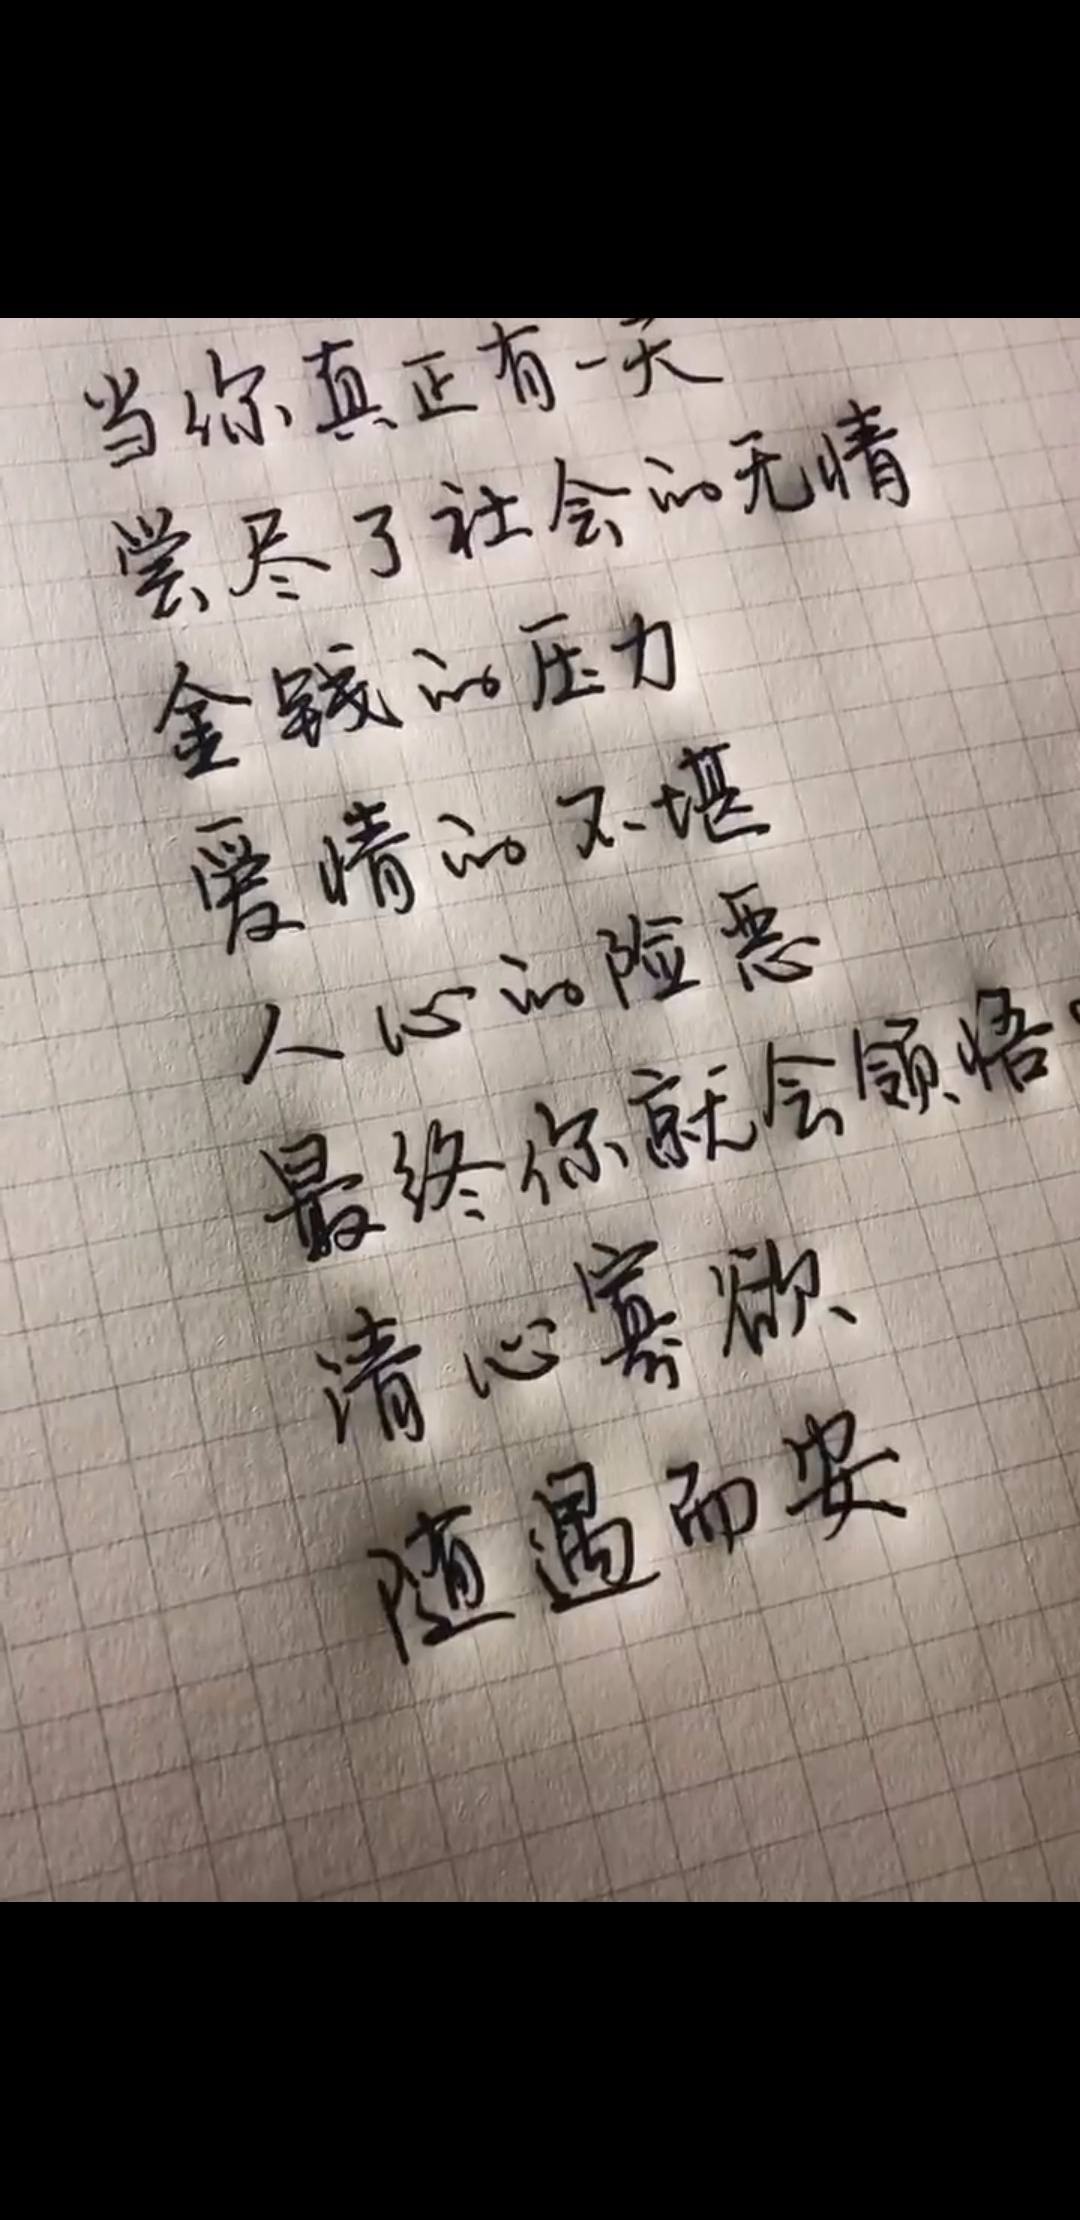 当你真正有一天
尝尽了社会的无情
金钱的压力
爱情的不堪
人心的险恶
最终你就会领悟
清心寡欲
随遇而安